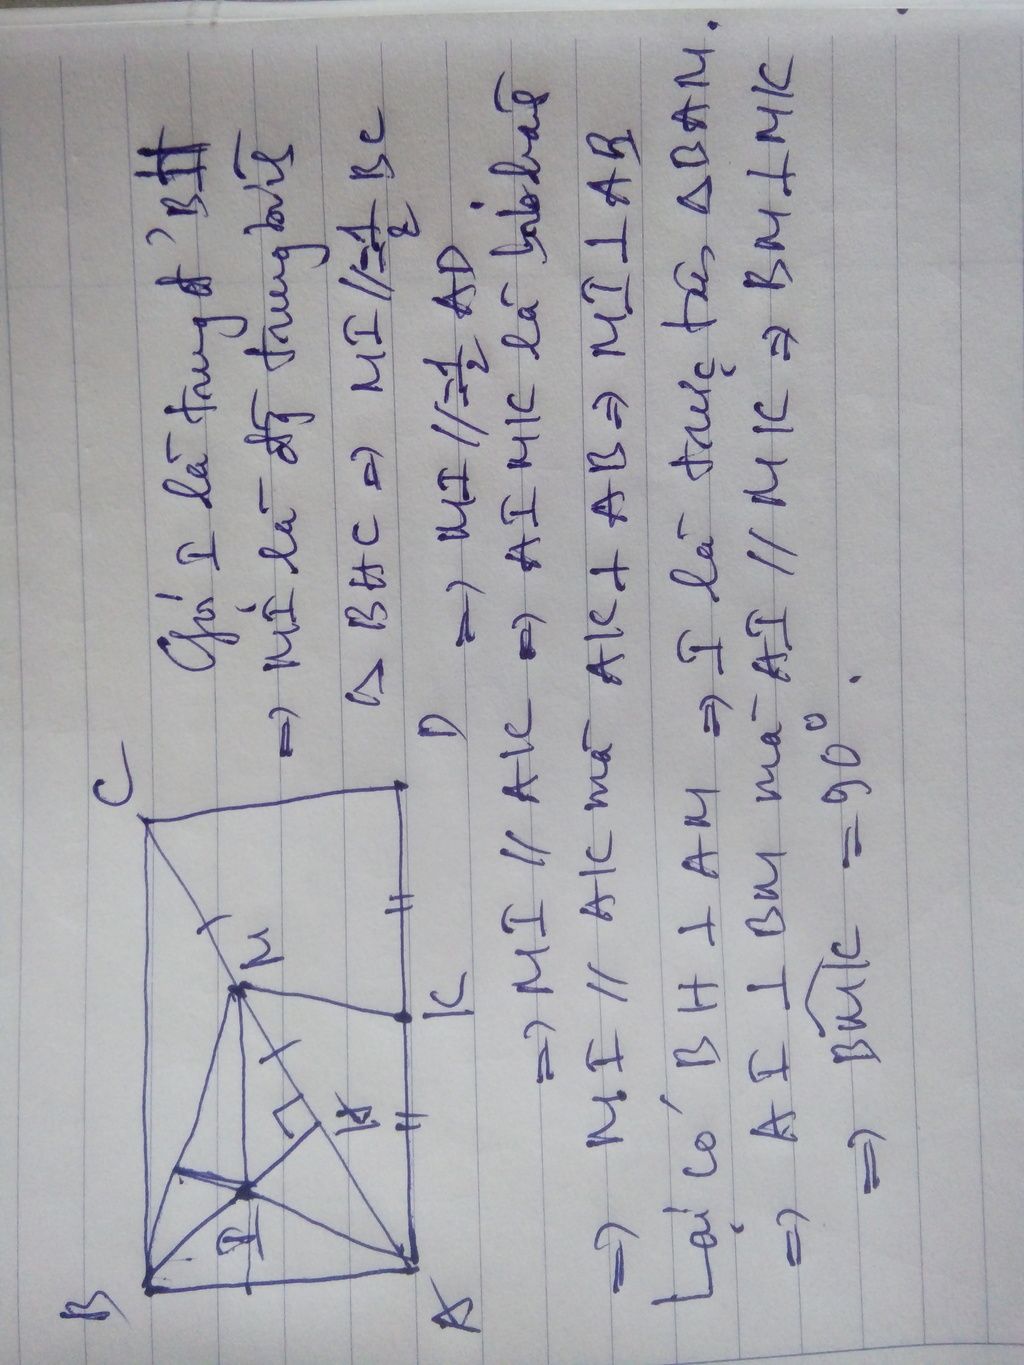 B
C
A
D
I
M
H
K
Gọi I là trung đ' BH
=> MI là đg trung bình
△ BHC => MI // = 1/2 BC
=> MI // = 1/2 AD
=> MI // AK => AIMK là hbhành
=> MI // AK mà AK ⊥ AB => MI ⊥ AB
Lại có BH ⊥ AM => I là trực tâm △ BAM.
=> AI ⊥ BM mà AI // MK => BM ⊥ MK
=> BMK = 90°.